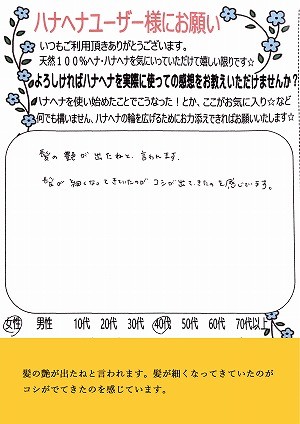 ハナヘナユーザー様にお願い
いつもご利用頂きありがとうございます。
天然100%ヘナ・ハナヘナを気にいっていただけて嬉しい限りです☆
よろしければハナヘナを実際に使っての感想をお教えいただけませんか?
ハナヘナを使い始めたことでこうなった!とか、ここがお気に入り☆など
何でも構いません、ハナヘナの輪を広げるためにお力添えできればお願いいたします☆
髪の艶が出たねと、言われます。
髪が細くなってきていたのが コシが出てきたのを感じています。
女性 男性 10代 20代 30代 40代 50代 60代 70代以上
髪の艶が出たねと言われます。髪が細くなってきていたのが
コシがでてきたのを感じています。